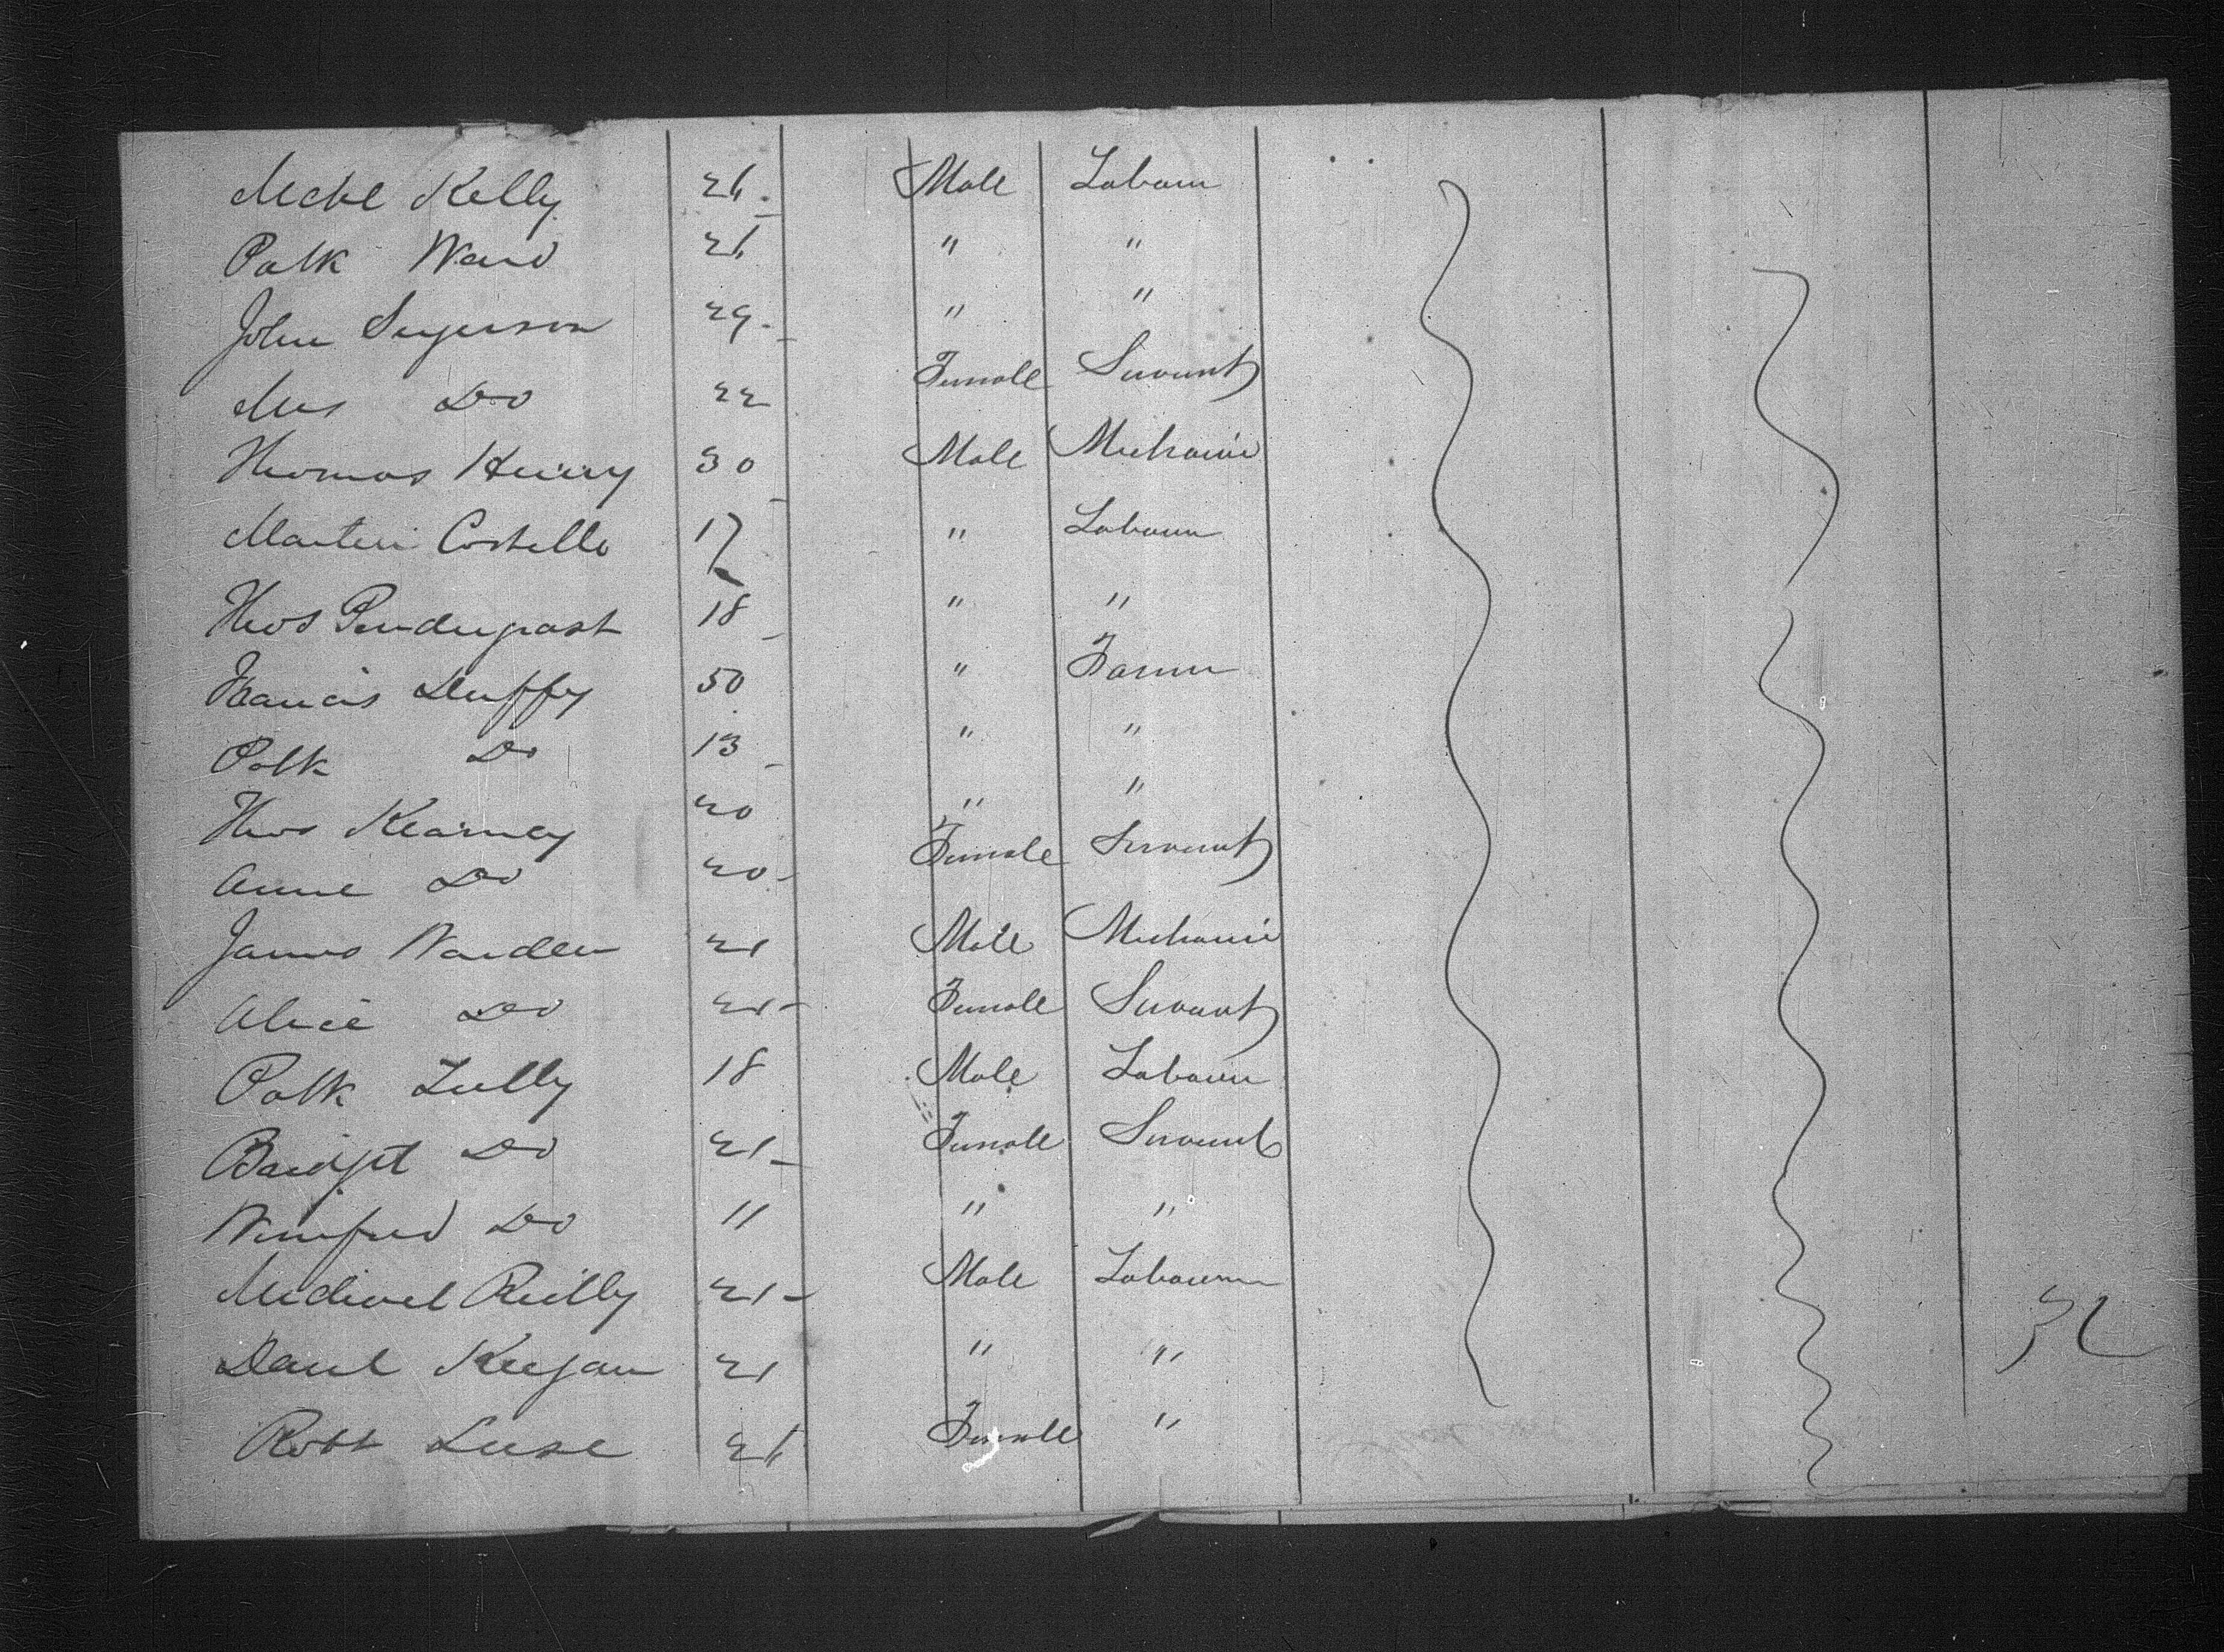 Michl Kelly 26 Male Labourer
Patk Ward 26 " "
John Segerson 29 " "
Mrs Do 22 Female Servant
Thomas Henry 30 Male Mechanic
Martin Costello 17 " Labourer
Thos Pendergast 18 " "
Francis Duffy 50 " Farmer
Patk Do 13 " "
Thos Kearney 20 " "
Anne Do 20 Female Servant
James Warden 21 Male Mechanic
Alice Do 21 Female Servant
Patk Lully 18 Male Labourer
Bridget Do 21 Female Servant
Winifred Do 11 " "
Michael Reilly 21 Male Labourer
Danl Keegan 21 " "
Robt 26 Female "